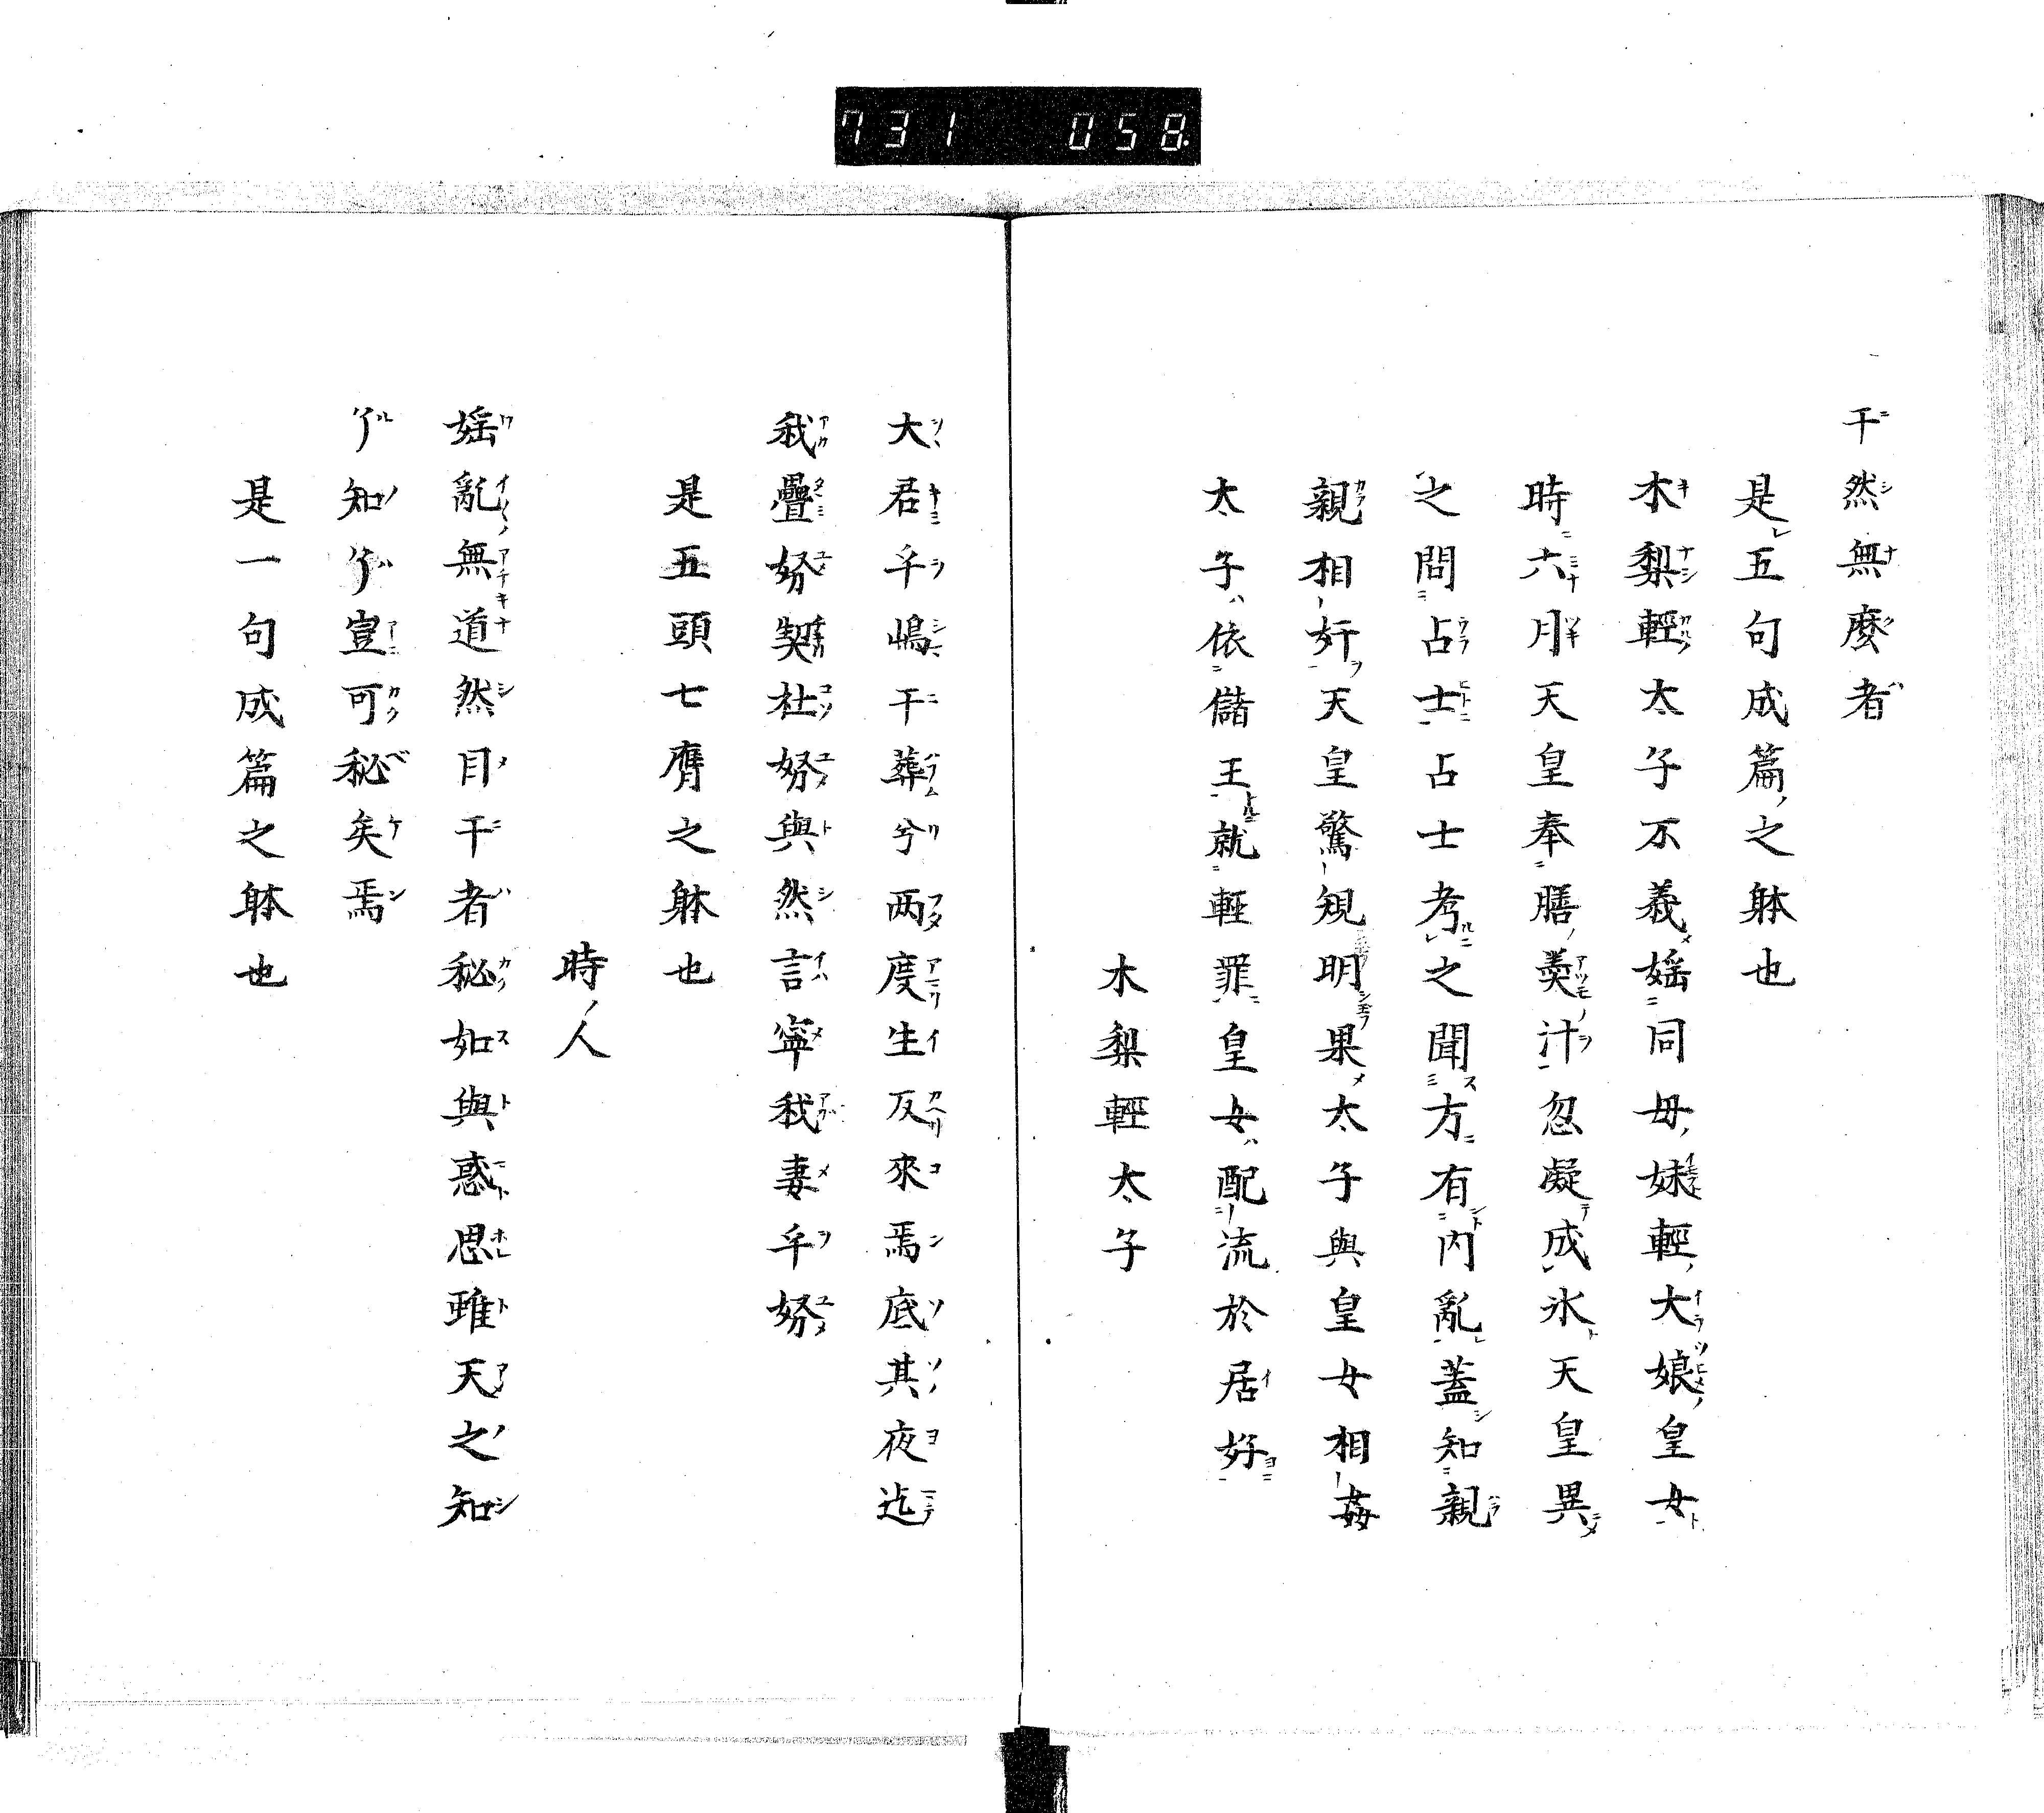 731 058
干然無麼者
是五句成篇之躰也
木梨輕太子不義婬同母妹輕大娘皇女
時六月天皇奉膳羹汁忽凝成氷天皇異
之問占士占士考之聞方有内亂蓋知親
親相奸天皇驚規明果太子與皇女相姦
太子依儲王就輕罪皇女配流於居好
木梨輕太子
大君乎嶋干葬兮两度生反來焉底其夜迄
我疊努契社努與然言寧我妻乎努
是五頭七膺之躰也
時人
婬亂無道然目干者秘如與惑思雖天之知
知豈可秘矣焉
是一句成篇之躰也